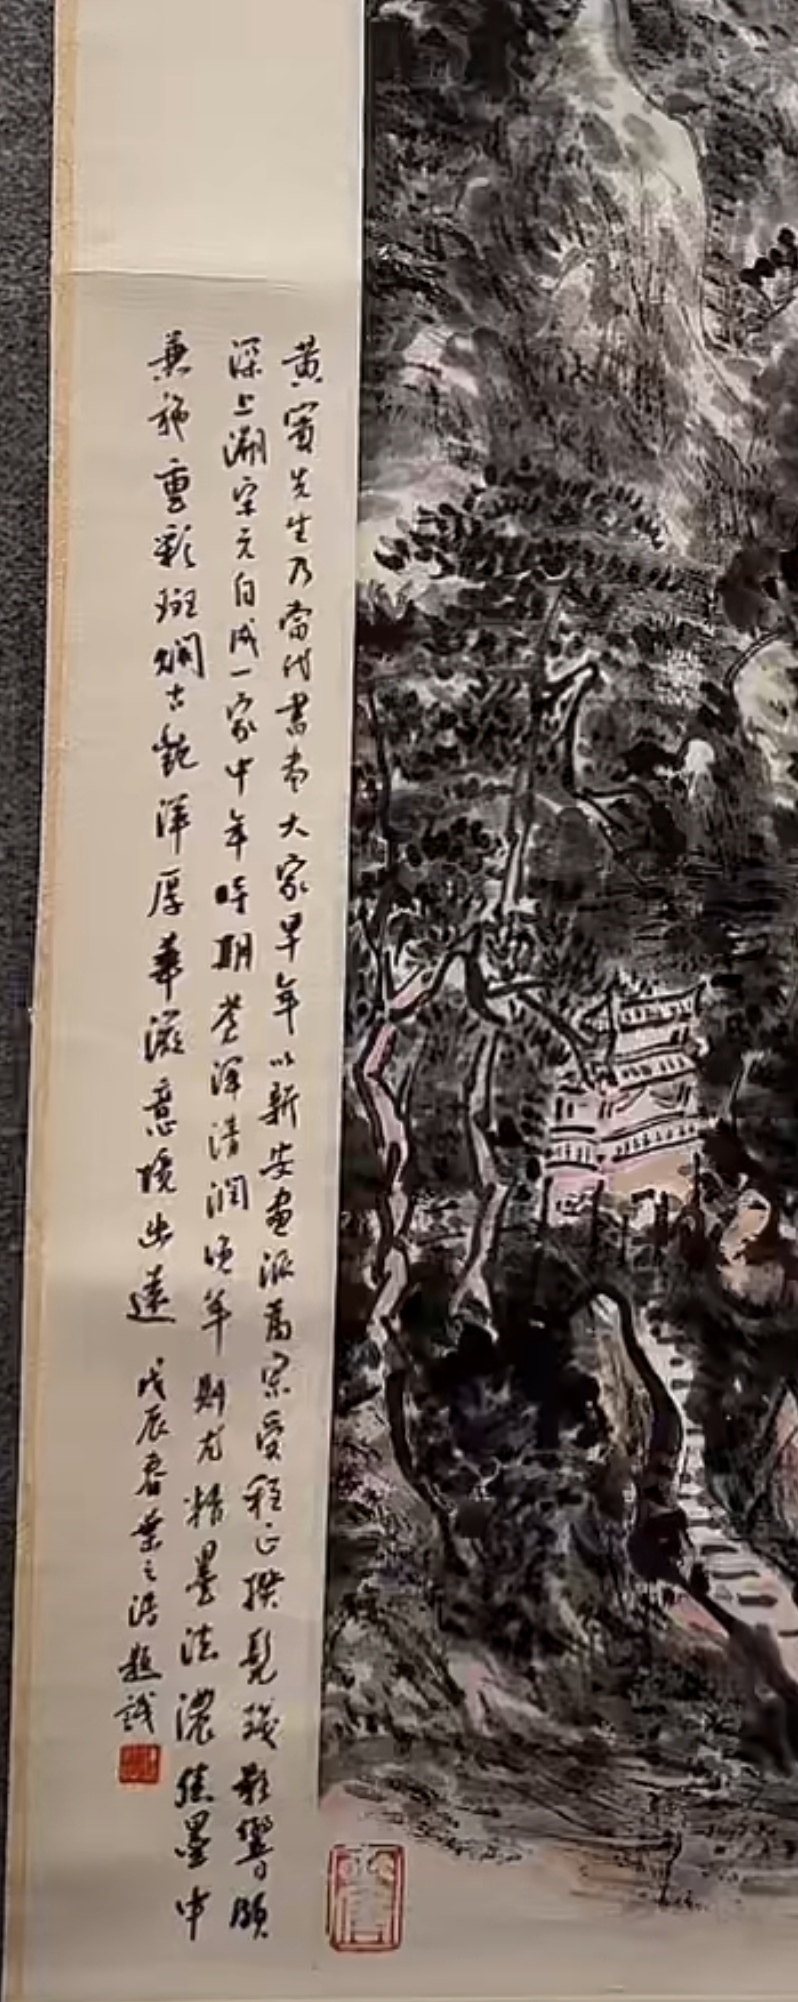 黄賓先生乃當代書畫大家早年以新安畫派為宗受程正揆髡残影響頗
深上溯宋元自成一家中年時期蒼渾清潤晚年則尤精墨法濃焦墨中
兼施重彩斑斕古艷渾厚華滋意境幽遠 戊辰春葉之浩題識